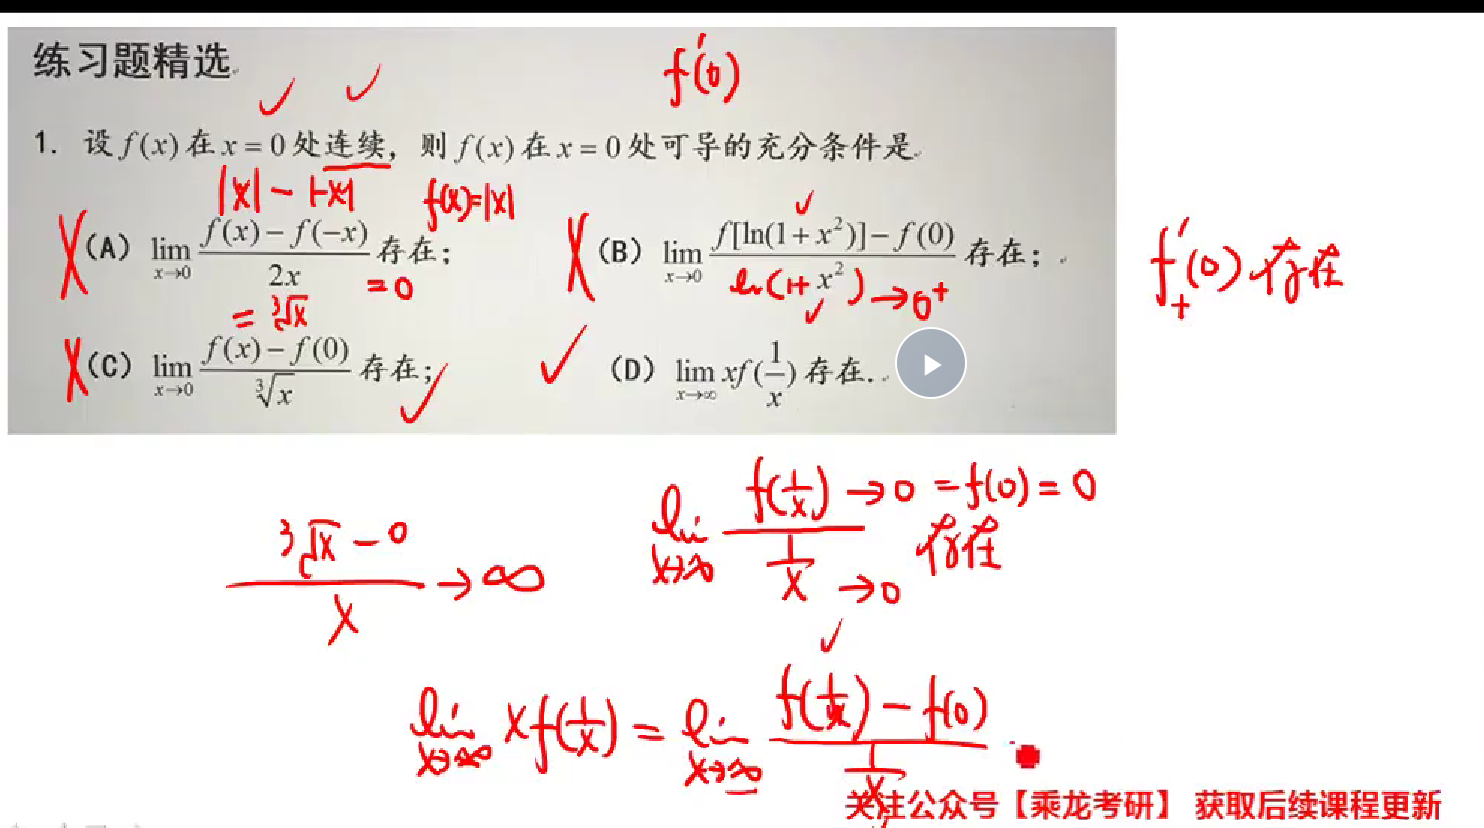 练习题精选
f'(0)
1. 设 f(x) 在 x = 0 处连续，则 f(x) 在 x = 0 处可导的充分条件是
|x| - |-x| f(x)=|x|
(A) lim x→0 f(x) − f(−x) / 2x 存在; = 0
(B) lim x→0 f[ln(1+x²)] − f(0) / ln(1+x²) → 0⁺ 存在;
f'₊(0) 存在
= ∛x
(C) lim x→0 f(x) − f(0) / ∛x 存在;
(D) lim x→∞ xf(1/x) 存在.
lim x→∞ f(1/x) → 0 = f(0) = 0 / 1/x → 0 存在
∛x − 0 / x → ∞
lim x→∞ xf(1/x) = lim x→∞ f(1/x) − f(0) / 1/x
关注公众号【乘龙考研】 获取后续课程更新